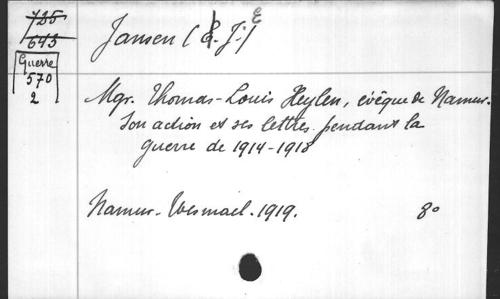 735
645
Guerre
570
2
Jansen (E. J.) E
Mgr. Thomas-Louis Heylen, évêque de Namur.
Son action et ses lettres pendant la
guerre de 1914-1918
Namur. Wesmael. 1919. 8°